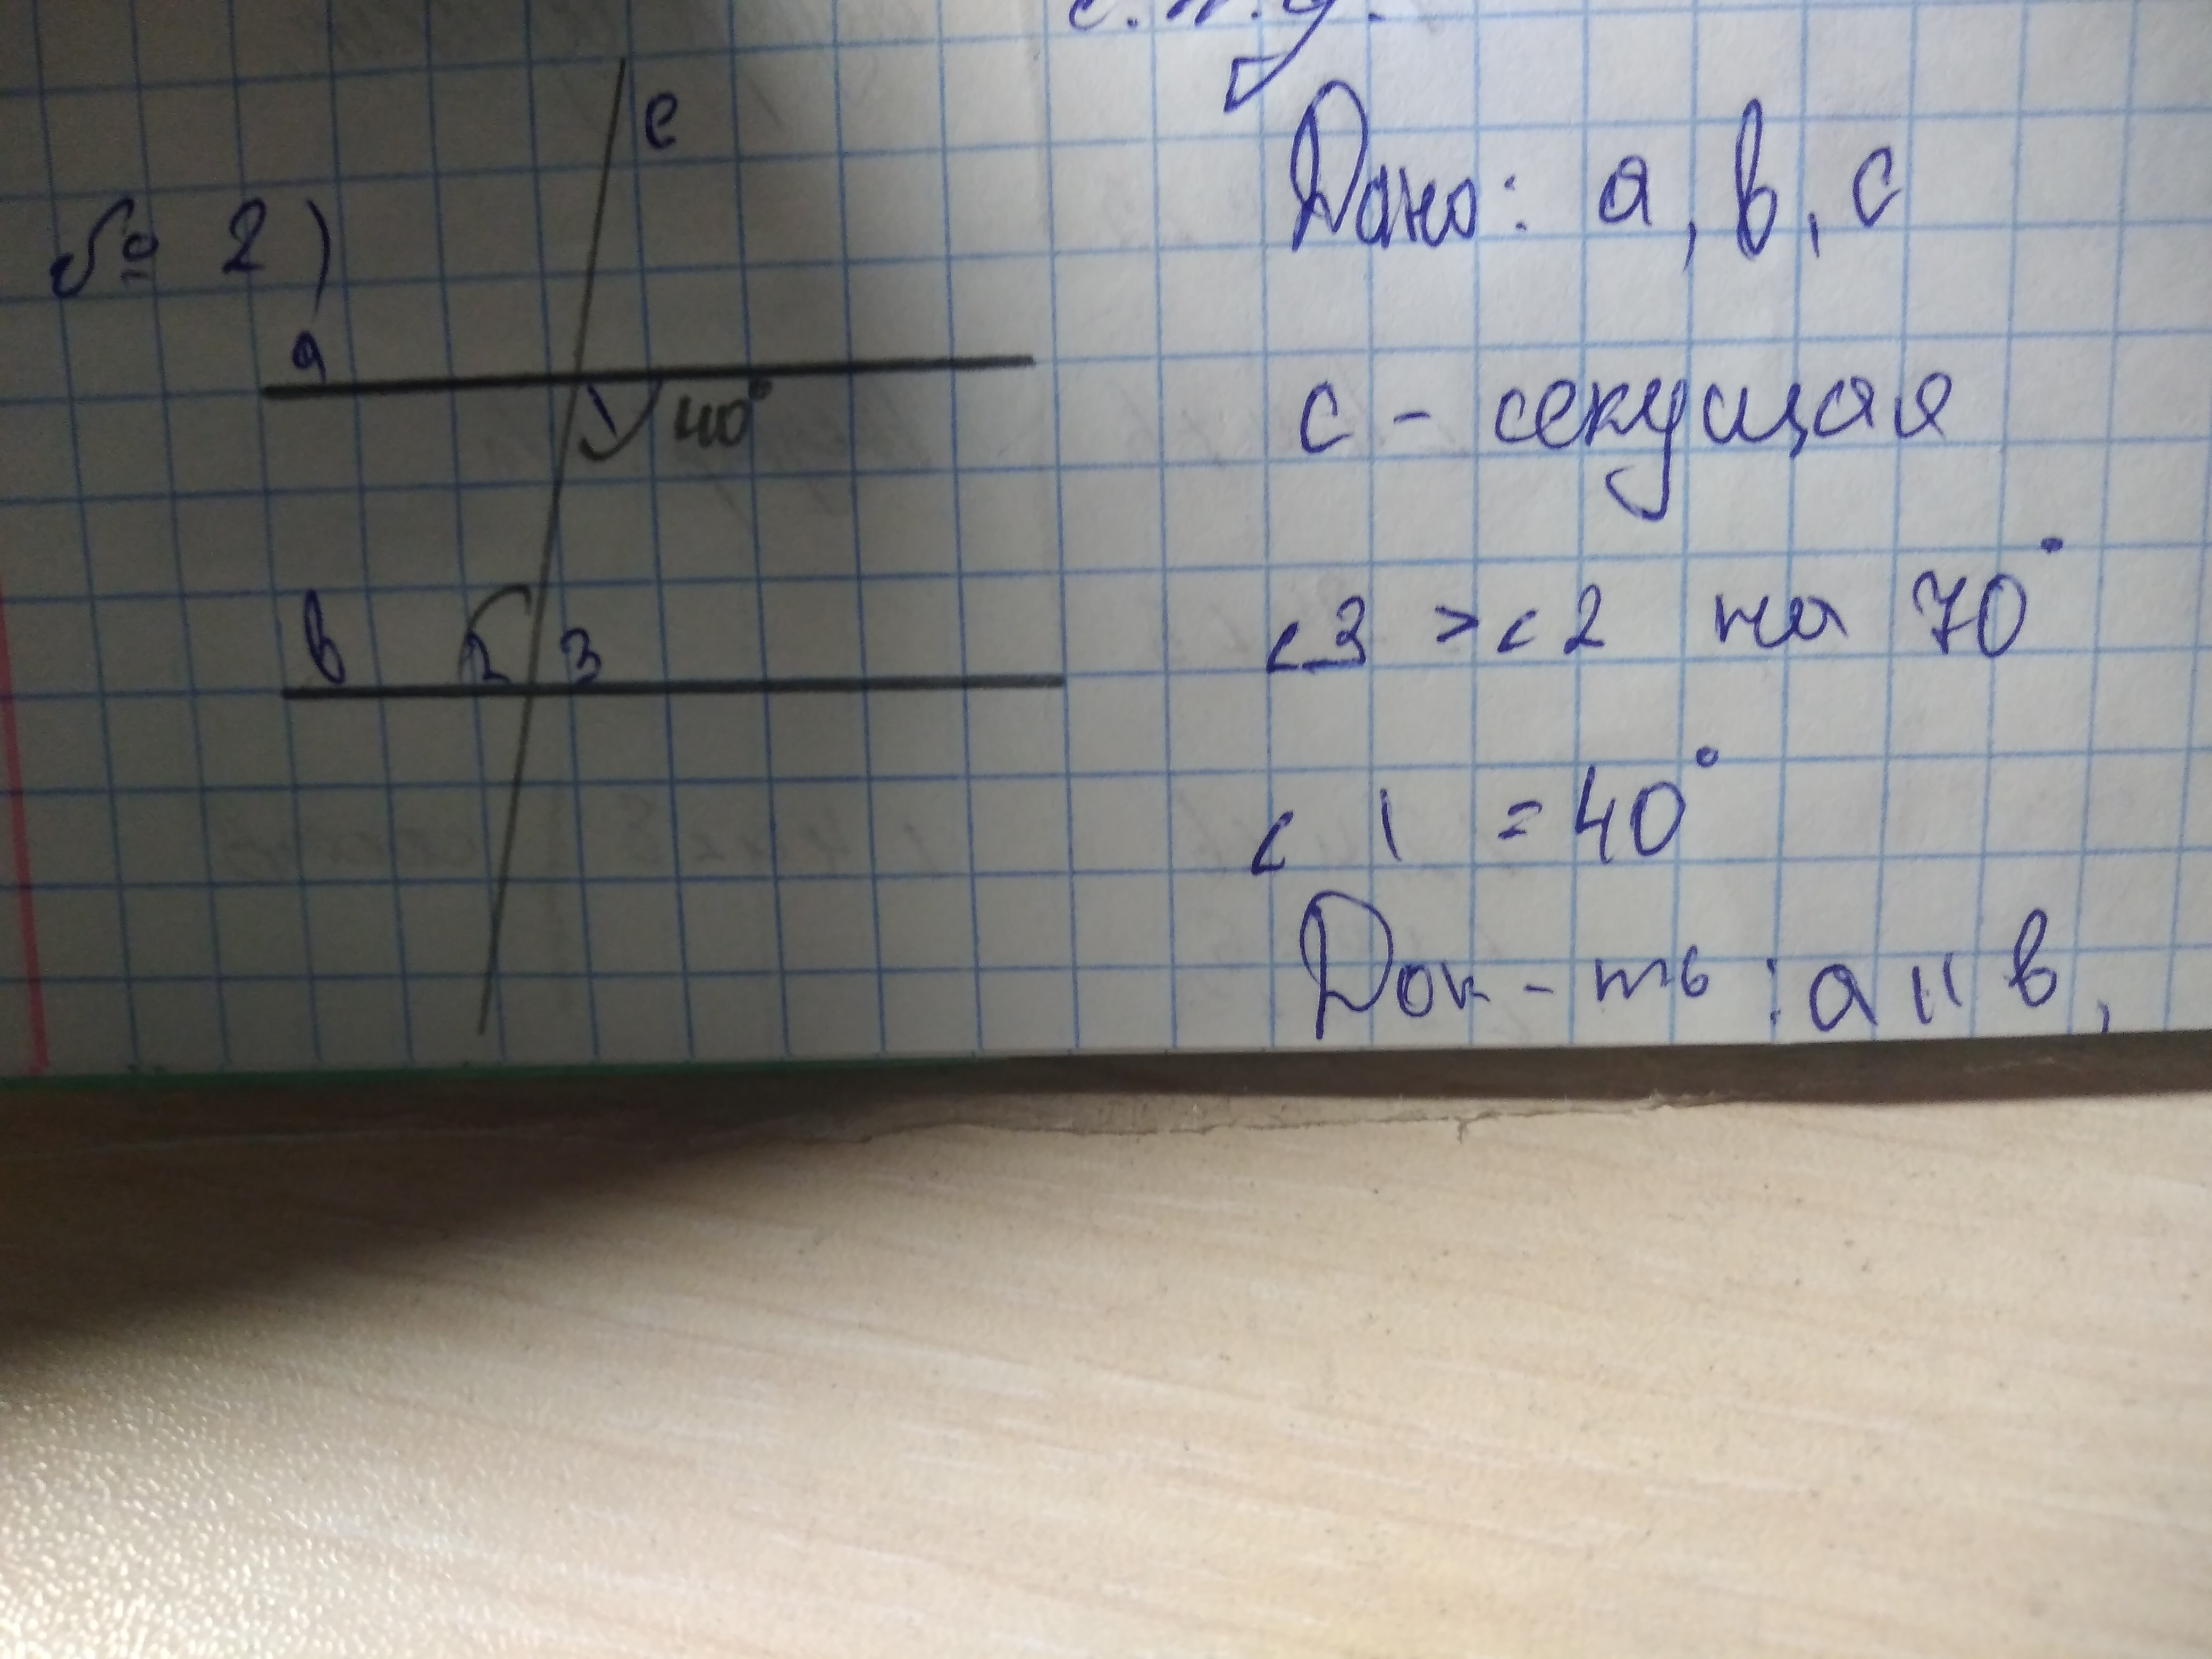 с.п.у.
№ 2)
c
a
1
40°
в
2 3
Дано: а, в, с
с - секущая
∠3 > ∠2 на 70°
∠ 1 = 40°
Док-ть: а || в,